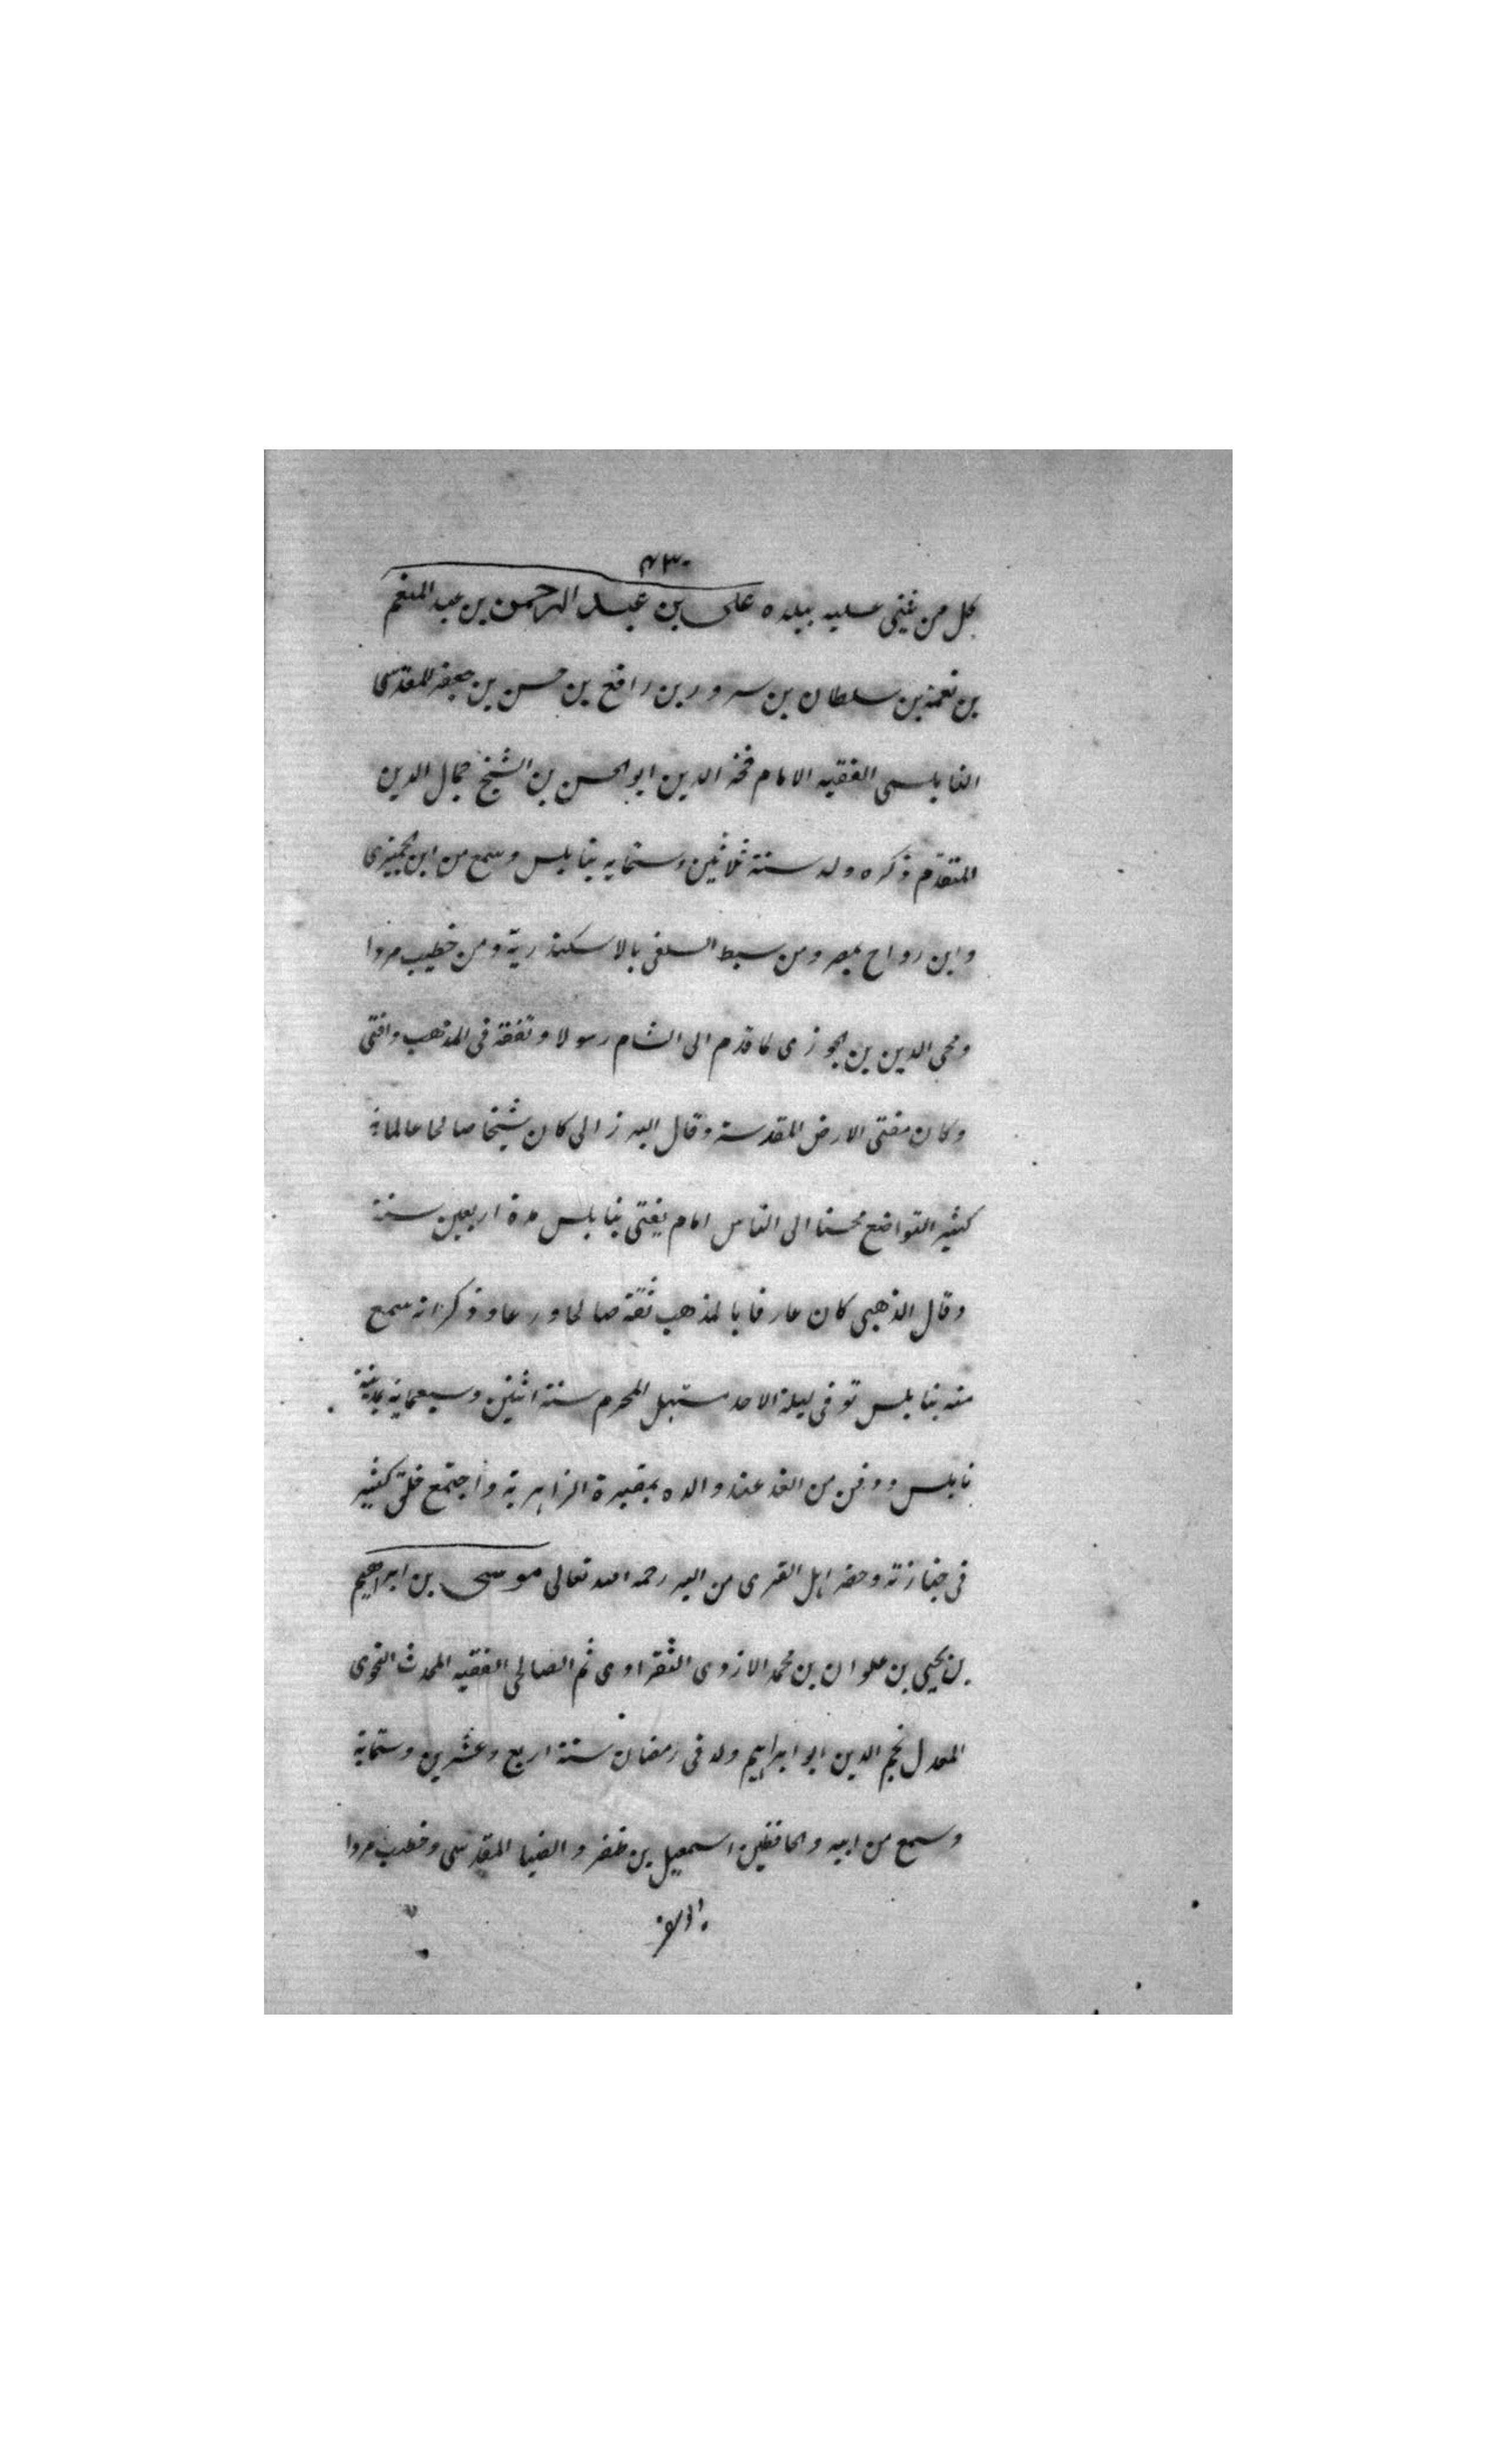 ٤٣٠
كل من غنى عليه ببلده على بن عبد الرحمن بن عبد المنعم
بن نعمة بن سلطان بن سرور بن رافع بن حسن بن جعفر المقدسى
النابلسى الفقيه الامام فخر الدين ابو الحسن بن الشيخ جمال الدين
المتقدم ذكره ولد سنة ثلاثين وستمايه بنابلس وسمع من ابن الجميزى
وابن رواج بمصر ومن سبط السلفى بالاسكندرية ومن خطيب مردا
ومحى الدين بن الجوزى لما قدم الى الشام رسولا وتفقه فى المذهب وافتى
وكان مفتى الارض المقدسة وقال البرزالى كان شيخا صالحا عالما
كثير التواضع محسنا الى الناس اقام يفتى بنابلس مدة اربعين سنة
وقال الذهبى كان عارفا بالمذهب ثقة صالحا ورعا وذكر انه سمع
منه بنابلس توفى ليلة الاحد مستهل المحرم سنة اثنين وسبعماية بمدينة
نابلس ودفن من الغد عند والده بمقبرة الزاهرية واجتمع خلق كثير
فى جنازته وحضر اهل القرى من البر رحمه الله تعالى موسى بن ابراهيم
بن يحيى بن علوان بن محمد الازدى الشقراوى ثم الصالحى الفقيه المحدث النحوى
المعدل نجم الدين ابو ابراهيم ولد فى رمضان سنة اربع وعشرين وستماية
وسمع من ابيه والحافظين اسمعيل بن ظفر والضيا المقدسى وخطيب مردا